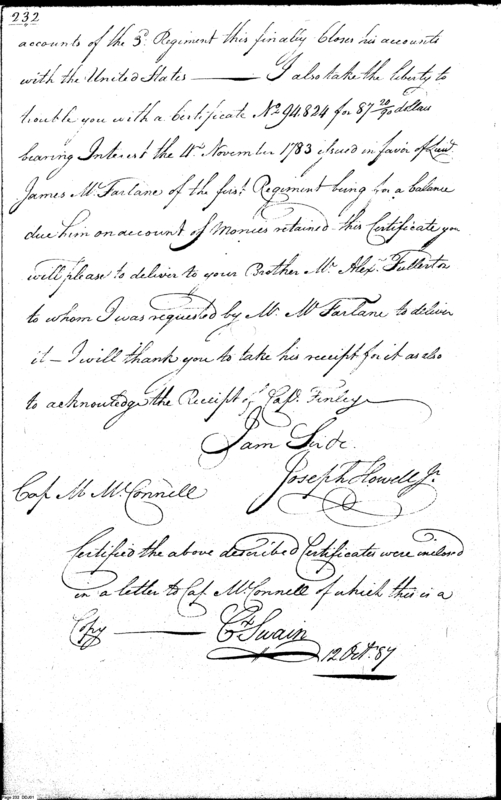 232
accounts of the 3d. Regiment this finally closes his accounts
with the United States —— I also take the liberty to
trouble you with a Certificate No 94.824 for 87 20/90 dollars
bearing Interest the 4th. November 1783 issued in favor of Lieut
James Mc. Farlane of the first Regiment being for a balance
due him on account of Monies retained this Certificate you
will please to deliver to your Brother Mr. Alexr. Fullerton
to whom I was requested by Mr. Mc Farlane to deliver
it — I will thank you to take his receipt for it as also
to acknowledge the Receipt of Capt. Finley
I am Sir &c.
Joseph Howell Jr.
Capt M Mc. Connell
Certified the above described Certificates were inclosed
in a letter to Capt. McConnell of which this is a
Copy —— Swain
12 Oct. 87
Page 232